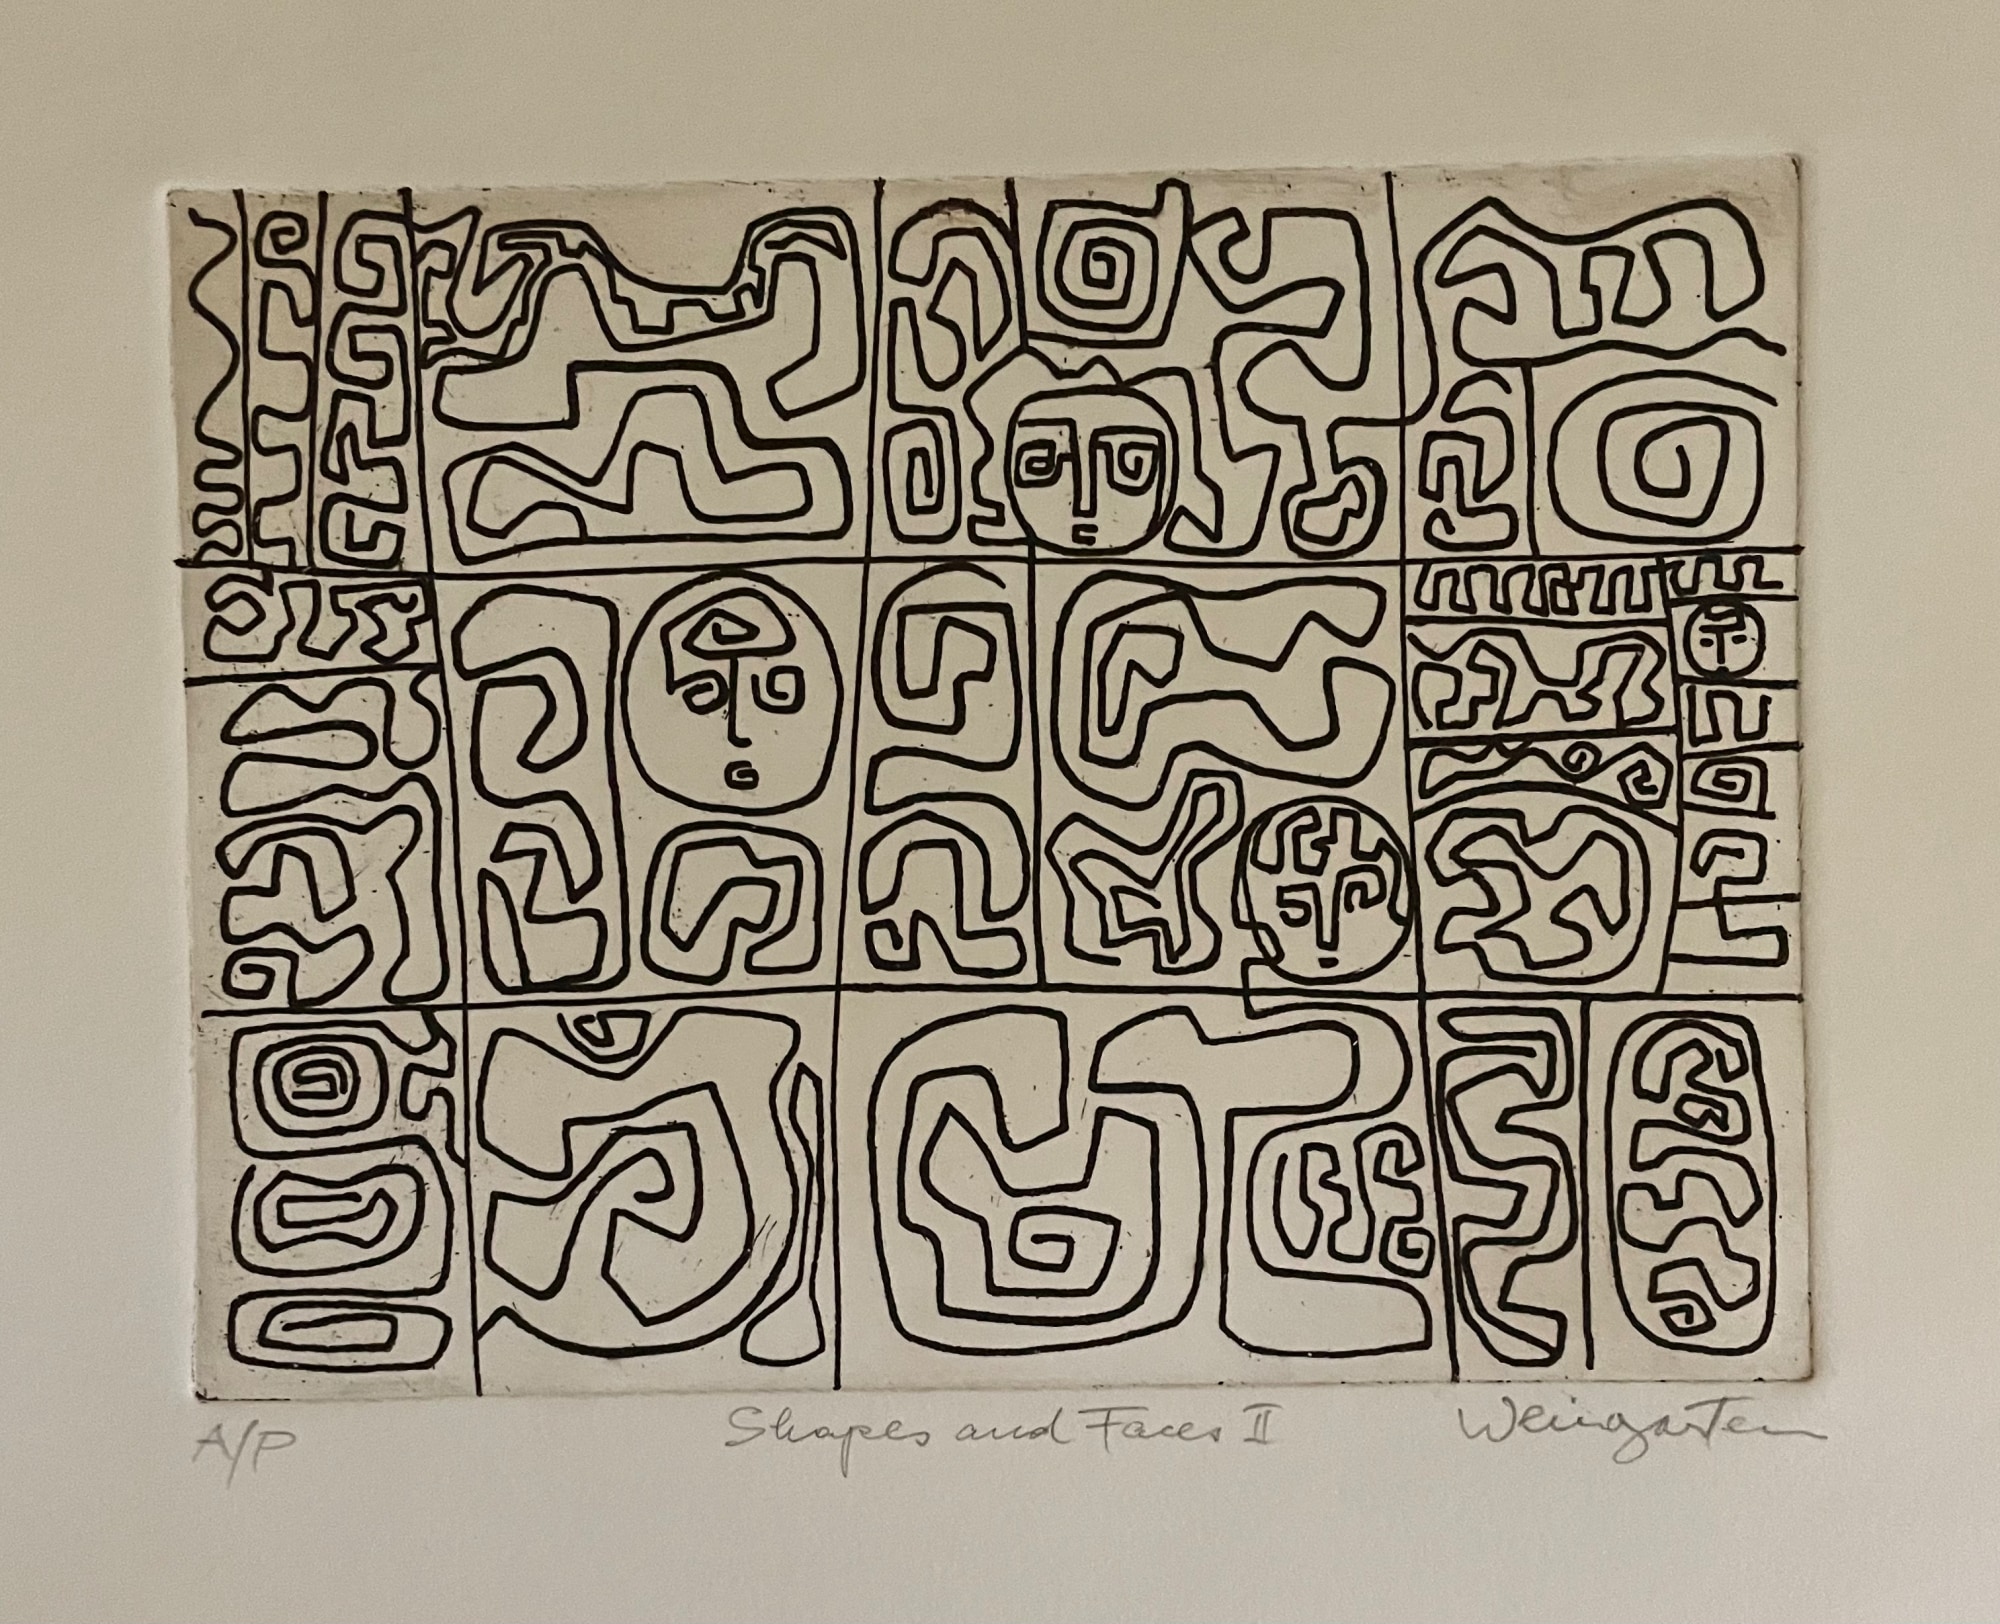 A/P Shapes and Faces II Weingarten